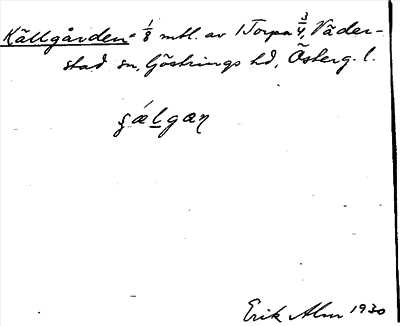 Källgården = 1/8 mtl. av 1 Torpa 3/4, Väder-
stad sn, Göstrings hd, Österg. l.
gálgan
Erik Alm 1930